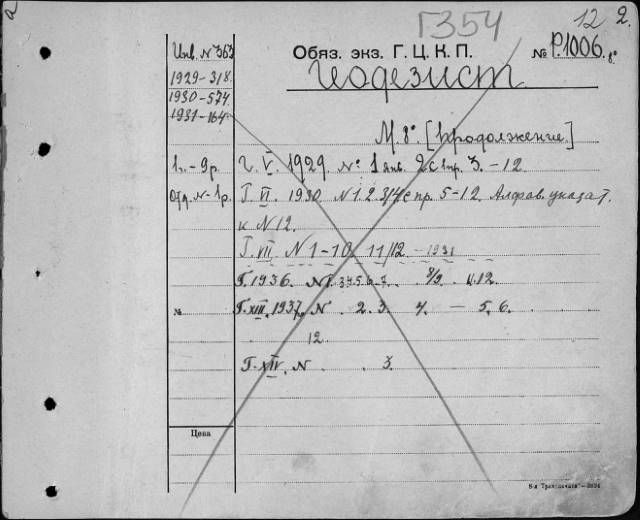 а
Г354
12 2.
Инв. № 363
Обяз. экз. Г.Ц.К.П.
№ Р.1006. 8°
1929-318.
Геодезист
1930-574.
1931-164.
М. 8°. [Продолжение.]
1.-9р.
Г. V. 1929. № 1 янв. 2 с пр. 3.-12.
Отд. №-1р.
Г. VI. 1930. N 1. 2. 3/4 с пр. 5-12. Алфав. указат.
к N 12.
Г. VII. N 1-10. 11/12. -1931
Г. 1936. N 1. 3.4.5.6.7. 8/9. 11.12.
№
Г. XIII. 1937. N . 2. 3. 4. — 5. 6.
12.
Г. XIV. N . . 3.
Цена